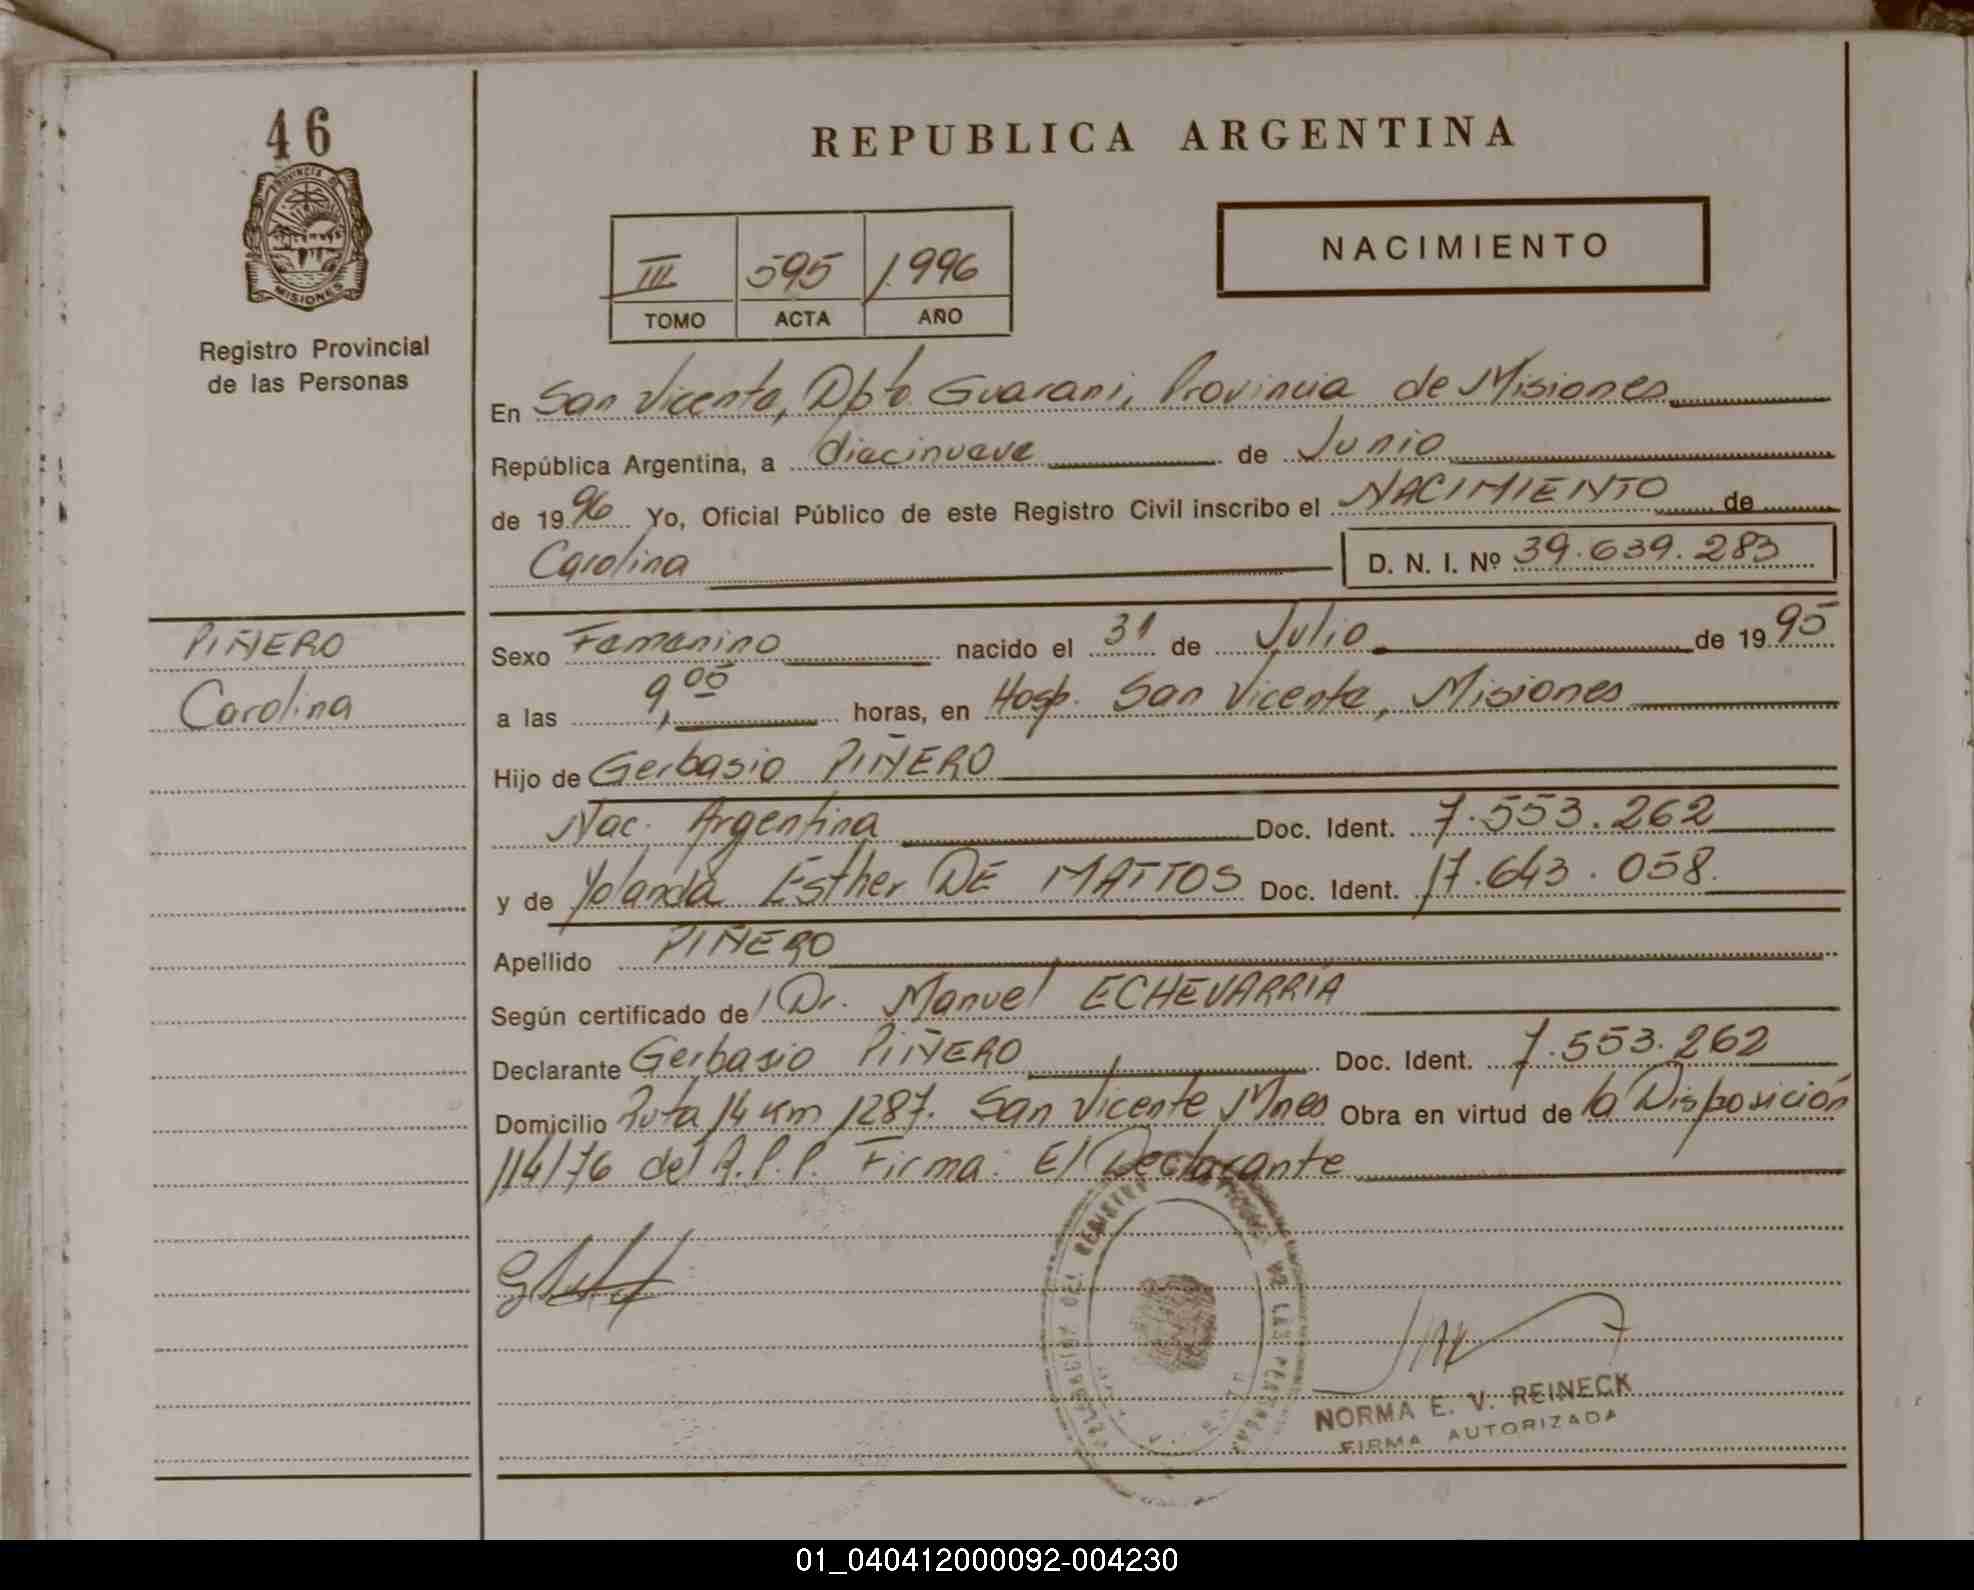 46
PROVINCIA DE
MISIONES
Registro Provincial
de las Personas
REPUBLICA ARGENTINA
NACIMIENTO
III 595 1996
TOMO ACTA AÑO
En San Vicente, Dpto Guarani, Provincia de Misiones
República Argentina, a diecinueve de Junio
de 1996 Yo, Oficial Público de este Registro Civil inscribo el NACIMIENTO de
Carolina D. N. I. Nº 39.639.283
PIÑERO
Carolina
Sexo Femenino nacido el 31 de Julio de 1995
a las 9,05 horas, en Hosp. San Vicente, Misiones
Hijo de Gerbasio PIÑERO
Nac. Argentina Doc. Ident. 7.553.262
y de Yolanda Esther DE MATTOS Doc. Ident. 17.643.058.
Apellido PIÑERO
Según certificado de Dr. Manuel ECHEVARRIA
Declarante Gerbasio PIÑERO Doc. Ident. 7.553.262
Domicilio Ruta 14 Km 1287. San Vicente Mnes Obra en virtud de la Disposición
114/76 del R.P.P. Firma: El Declarante
NORMA E. V. REINECK
FIRMA AUTORIZADA
01_040412000092-004230